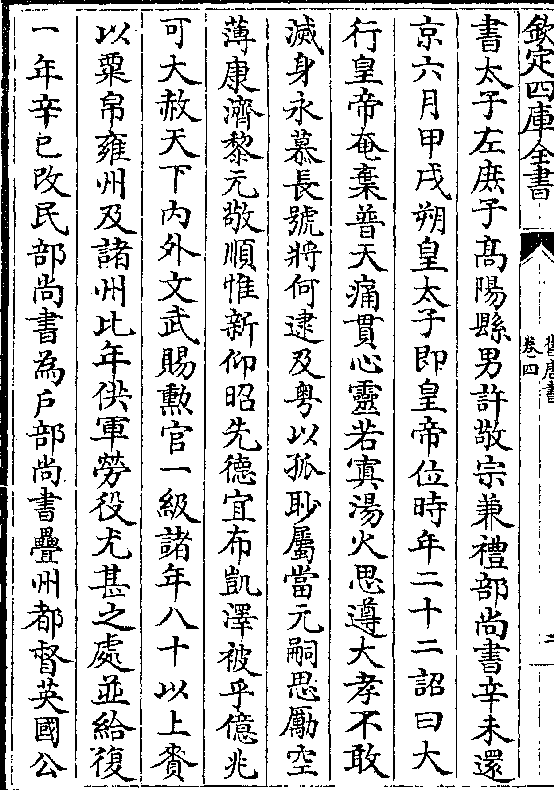 欽定四庫全書
書太子左庶子髙陽縣男許敬宗兼禮部尚書辛未還
京六月甲戌朔皇太子即皇帝位時年二十二詔曰大
行皇帝奄棄普天痛貫心靈若寘湯火思遵大孝不敢
滅身永慕長號將何逮及粤以孤眇屬當元嗣思勵空
薄康濟黎元敬順惟新仰昭先德宜布凱澤被乎億兆
可大赦天下内外文武賜勲官一級諸年八十以上賚
以粟帛雍州及諸州比年供軍勞役尤甚之處並給復
一年辛巳改民部尚書為戶部尚書疊州都督英國公
舊唐書
卷四